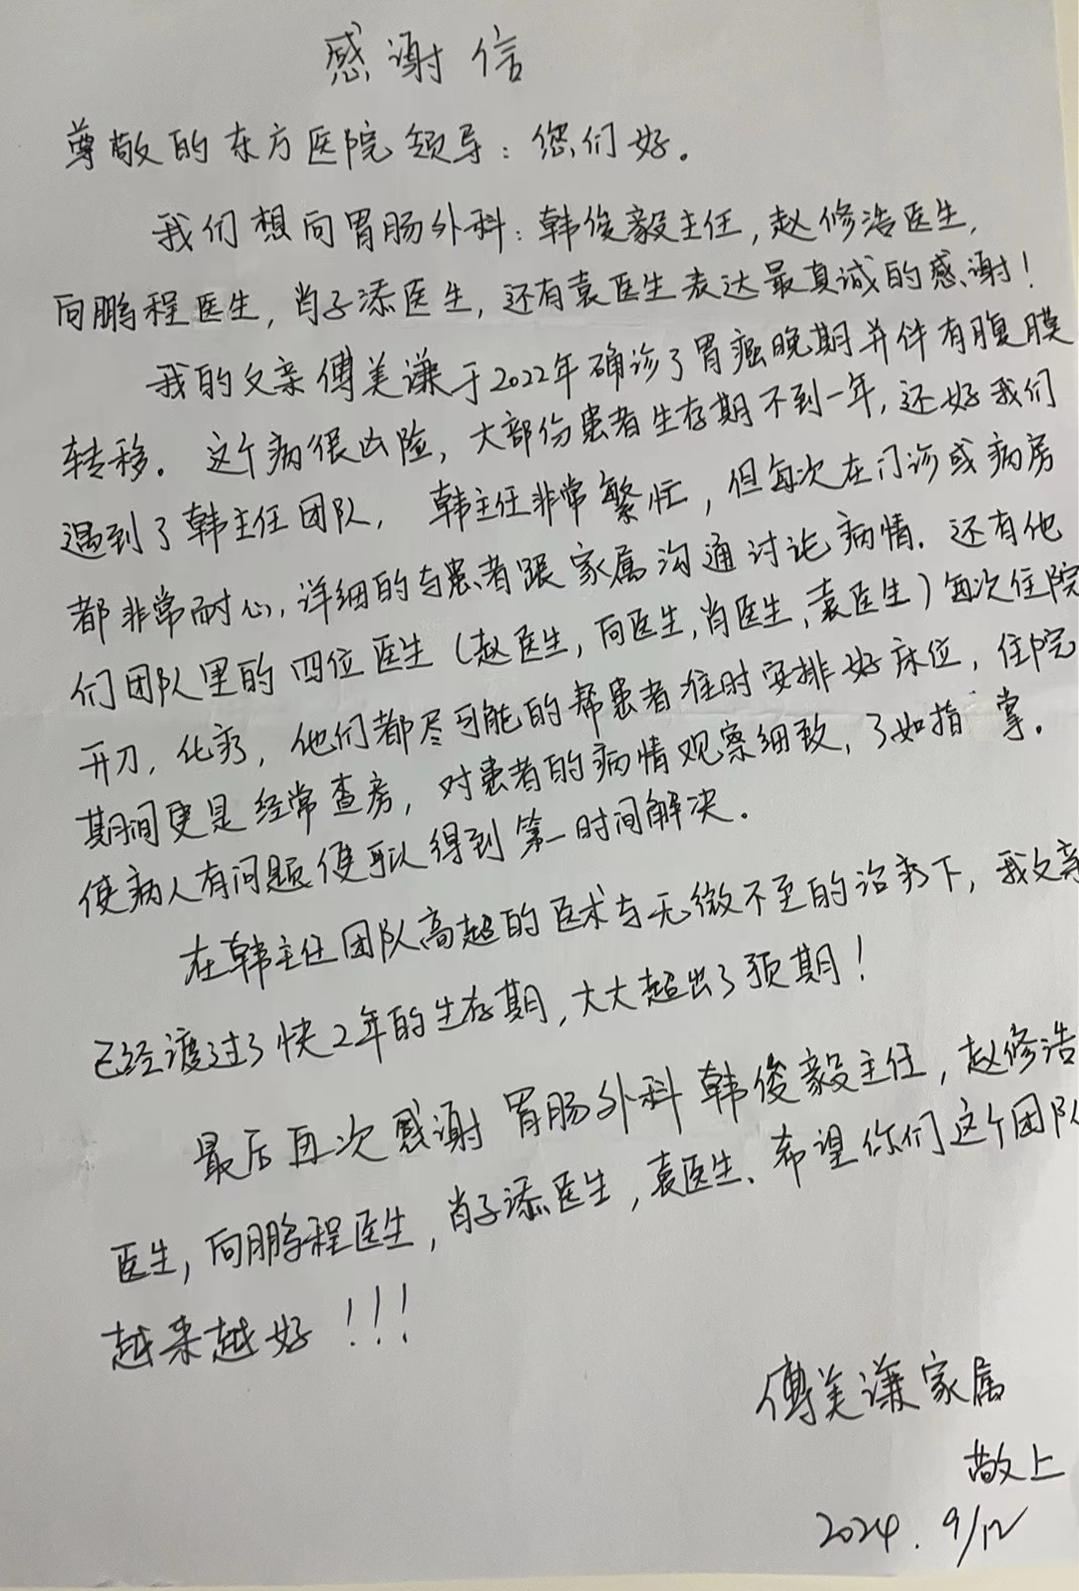 感谢信
尊敬的东方医院领导：您们好。
我们想向胃肠外科：韩俊毅主任，赵修浩医生，
向鹏程医生，肖子添医生，还有袁医生表达最真诚的感谢！
我的父亲傅美谦于2022年确诊了胃癌晚期并伴有腹膜
转移。这个病很凶险，大部份患者生存期不到一年，还好我们
遇到了韩主任团队，韩主任非常繁忙，但每次在门诊或病房
都非常耐心，详细的与患者跟家属沟通讨论病情．还有他
们团队里的四位医生（赵医生，向医生，肖医生，袁医生）每次住院
开刀，化疗，他们都尽可能的帮患者准时安排好床位，住院
期间更是经常查房，对患者的病情观察细致，了如指掌。
使病人有问题便可以得到第一时间解决。
在韩主任团队高超的医术与无微不至的治疗下，我父亲
已经渡过了快2年的生存期，大大超出了预期！
最后再次感谢胃肠外科韩俊毅主任，赵修浩
医生，向鹏程医生，肖子添医生，袁医生、希望你们这个团队
越来越好！！！
傅美谦家属
敬上
2024．9/12